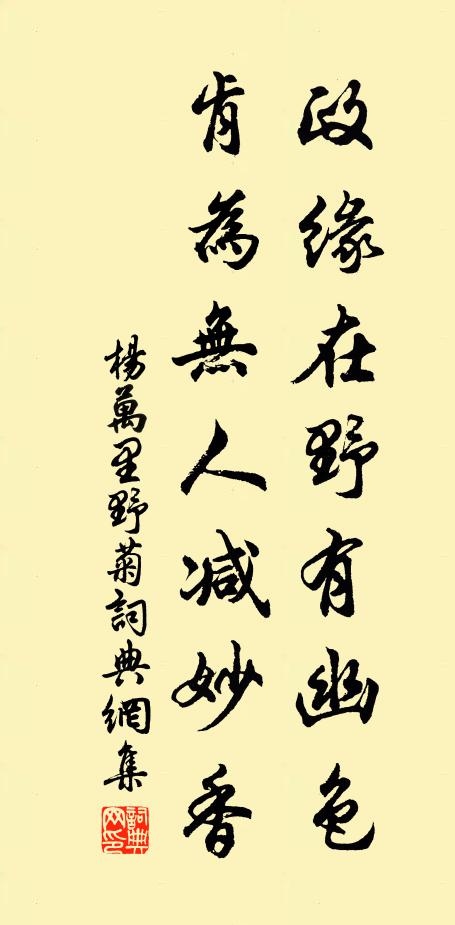 政缘在野有幽色
肯為無人减妙香
楊萬里野菊詞典網集
詞典網印